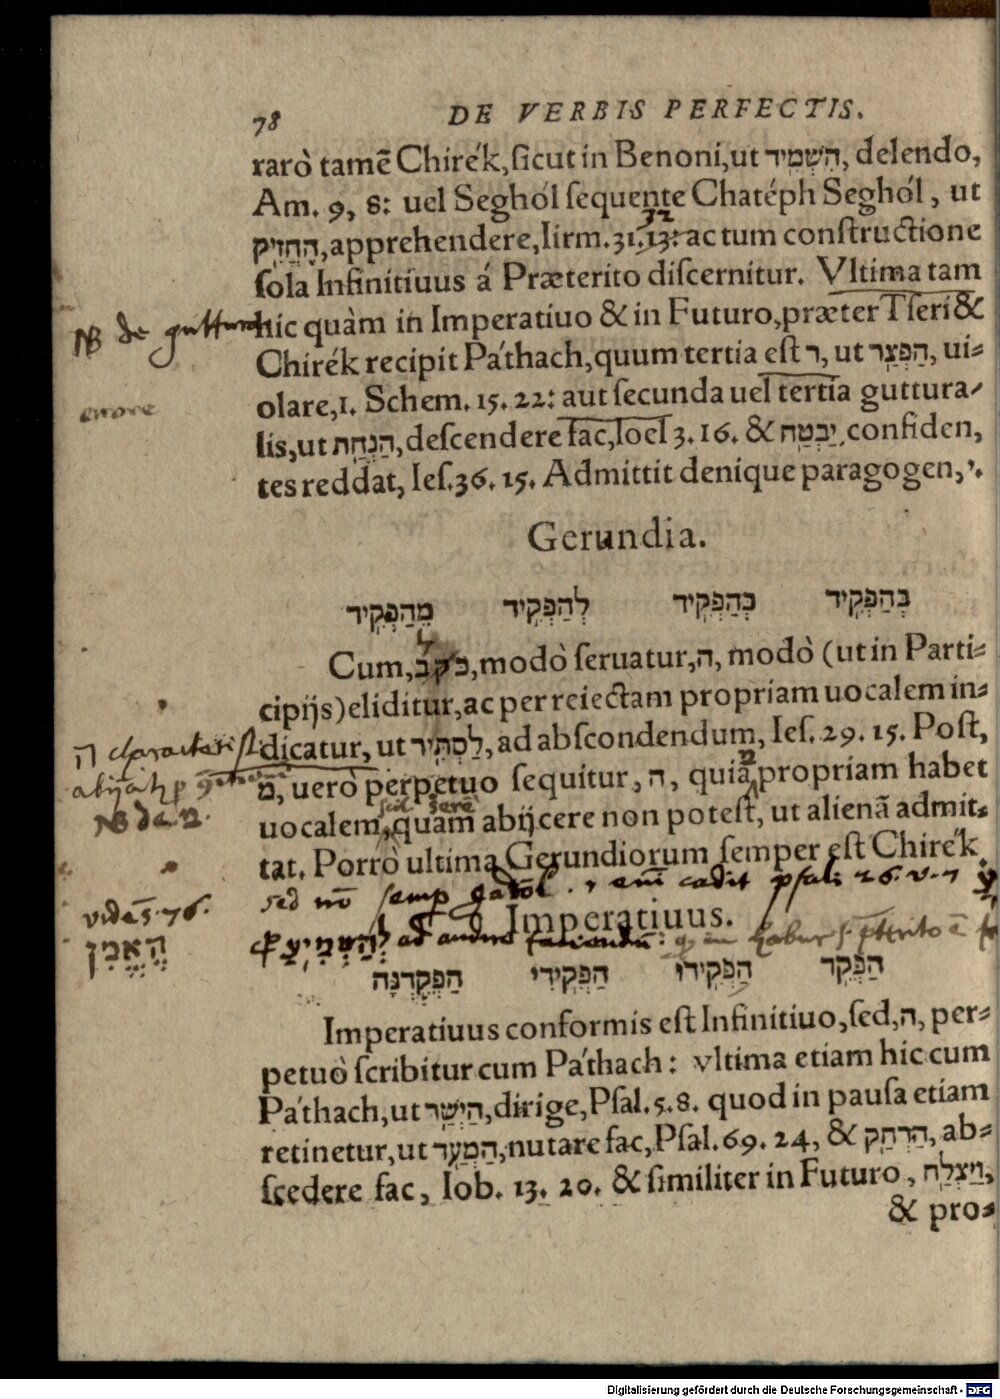 78 DE VERBIS PERFECTIS.
rarò tamẽ Chirék, ſicut in Benoni, ut הִשְׁמִיד, delendo,
Am. 9, 8: uel Seghól ſequente Chatéph Seghól, ut
32
הֶחֱזִיק, apprehendere, Iirm. 31. 13: ac tum conſtructione
ſola Infinitiuus á Præterito diſcernitur. Vltima tam
NB de guttural
hic quàm in Imperatiuo & in Futuro, præter Tſeri &
Chirék recipit Páthach, quum tertia eſt ר, ut הַפְצַר, ui=
errore
olare, 1. Schem. 15. 22: aut ſecunda uel tertia guttura=
lis, ut הַנְחַת, deſcendere fac, Ioel 3. 16. & יַבְטַח, confiden,
tes reddat, Ieſ. 36. 15. Admittit denique paragogen, י.
Gerundia.
בְּהַפְקִיד כְּהַפְקִיד לְהַפְקִיד מֵהַפְקִיד
ל
Cum, בּכ, modò ſeruatur, ה, modò (ut in Parti=
cipijs) eliditur, ac per reiectam propriam uocalem in=
ה characteriſt
dicatur, ut לַסְתִּיר, ad abſcondendum, Ieſ. 29. 15. Poſt,
מ, uerò perpetuo ſequitur, ה, quia propriam habet
NB de מ.
uocalem, quam abijcere non poteſt, ut alienã admit=
tat. Porrò ultima Gerundiorum ſemper eſt Chirék.
sed nõ semp gadol. cadit psal: 26. v. 7
vide s. 76.
Imperatiuus.
הֶאֱמִין
לַהַשְׁמִיעַ ad audire faciendũ:
הַפְקֵד הַפְקִידוּ הַפְקִידִי הַפְקֵדְנָה
Imperatiuus conformis eſt Infinitiuo, ſed, ה, per=
petuò ſcribitur cum Páthach: vltima etiam hic cum
Páthach, ut הַיְשַׁר, dirige, Pſal. 5. 8. quod in pauſa etiam
retinetur, ut הַמְעַד, nutare fac, Pſal. 69. 24, & הַרְחַק, ab=
ſcedere fac, Iob. 13. 20. & ſimiliter in Futuro, וַיַּצְלַח,
& pro=
Digitalisierung gefördert durch die Deutsche Forschungsgemeinschaft - DFG